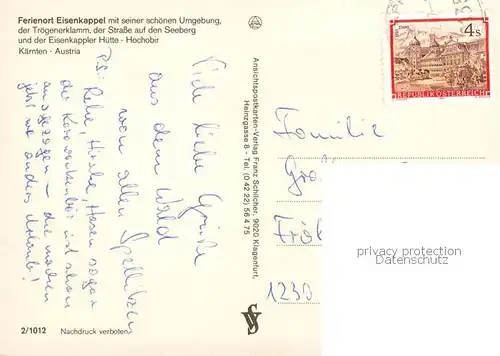 Ferienort Eisenkappel mit seiner schönen Umgebung,
der Trögenerklamm, der Straße auf den Seeberg
und der Eisenkappler Hütte - Hochobir
Kärnten - Austria
Viele liebe Grüße
aus dem Wald
von allen
P.S: Rehe, Hirsche, Hasen sogar
der ist schon
ausgezogen - die machen
jetzt wo anders Urlaub!
2/1012 Nachdruck verboten
Ansichtspostkarten-Verlag Franz Schilcher, 9020 Klagenfurt,
Heinzgasse 8 - Tel. (0 42 22) 56 4 75
4 S
REPUBLIK ÖSTERREICH
Familie
1230
privacy protection
Datenschutz